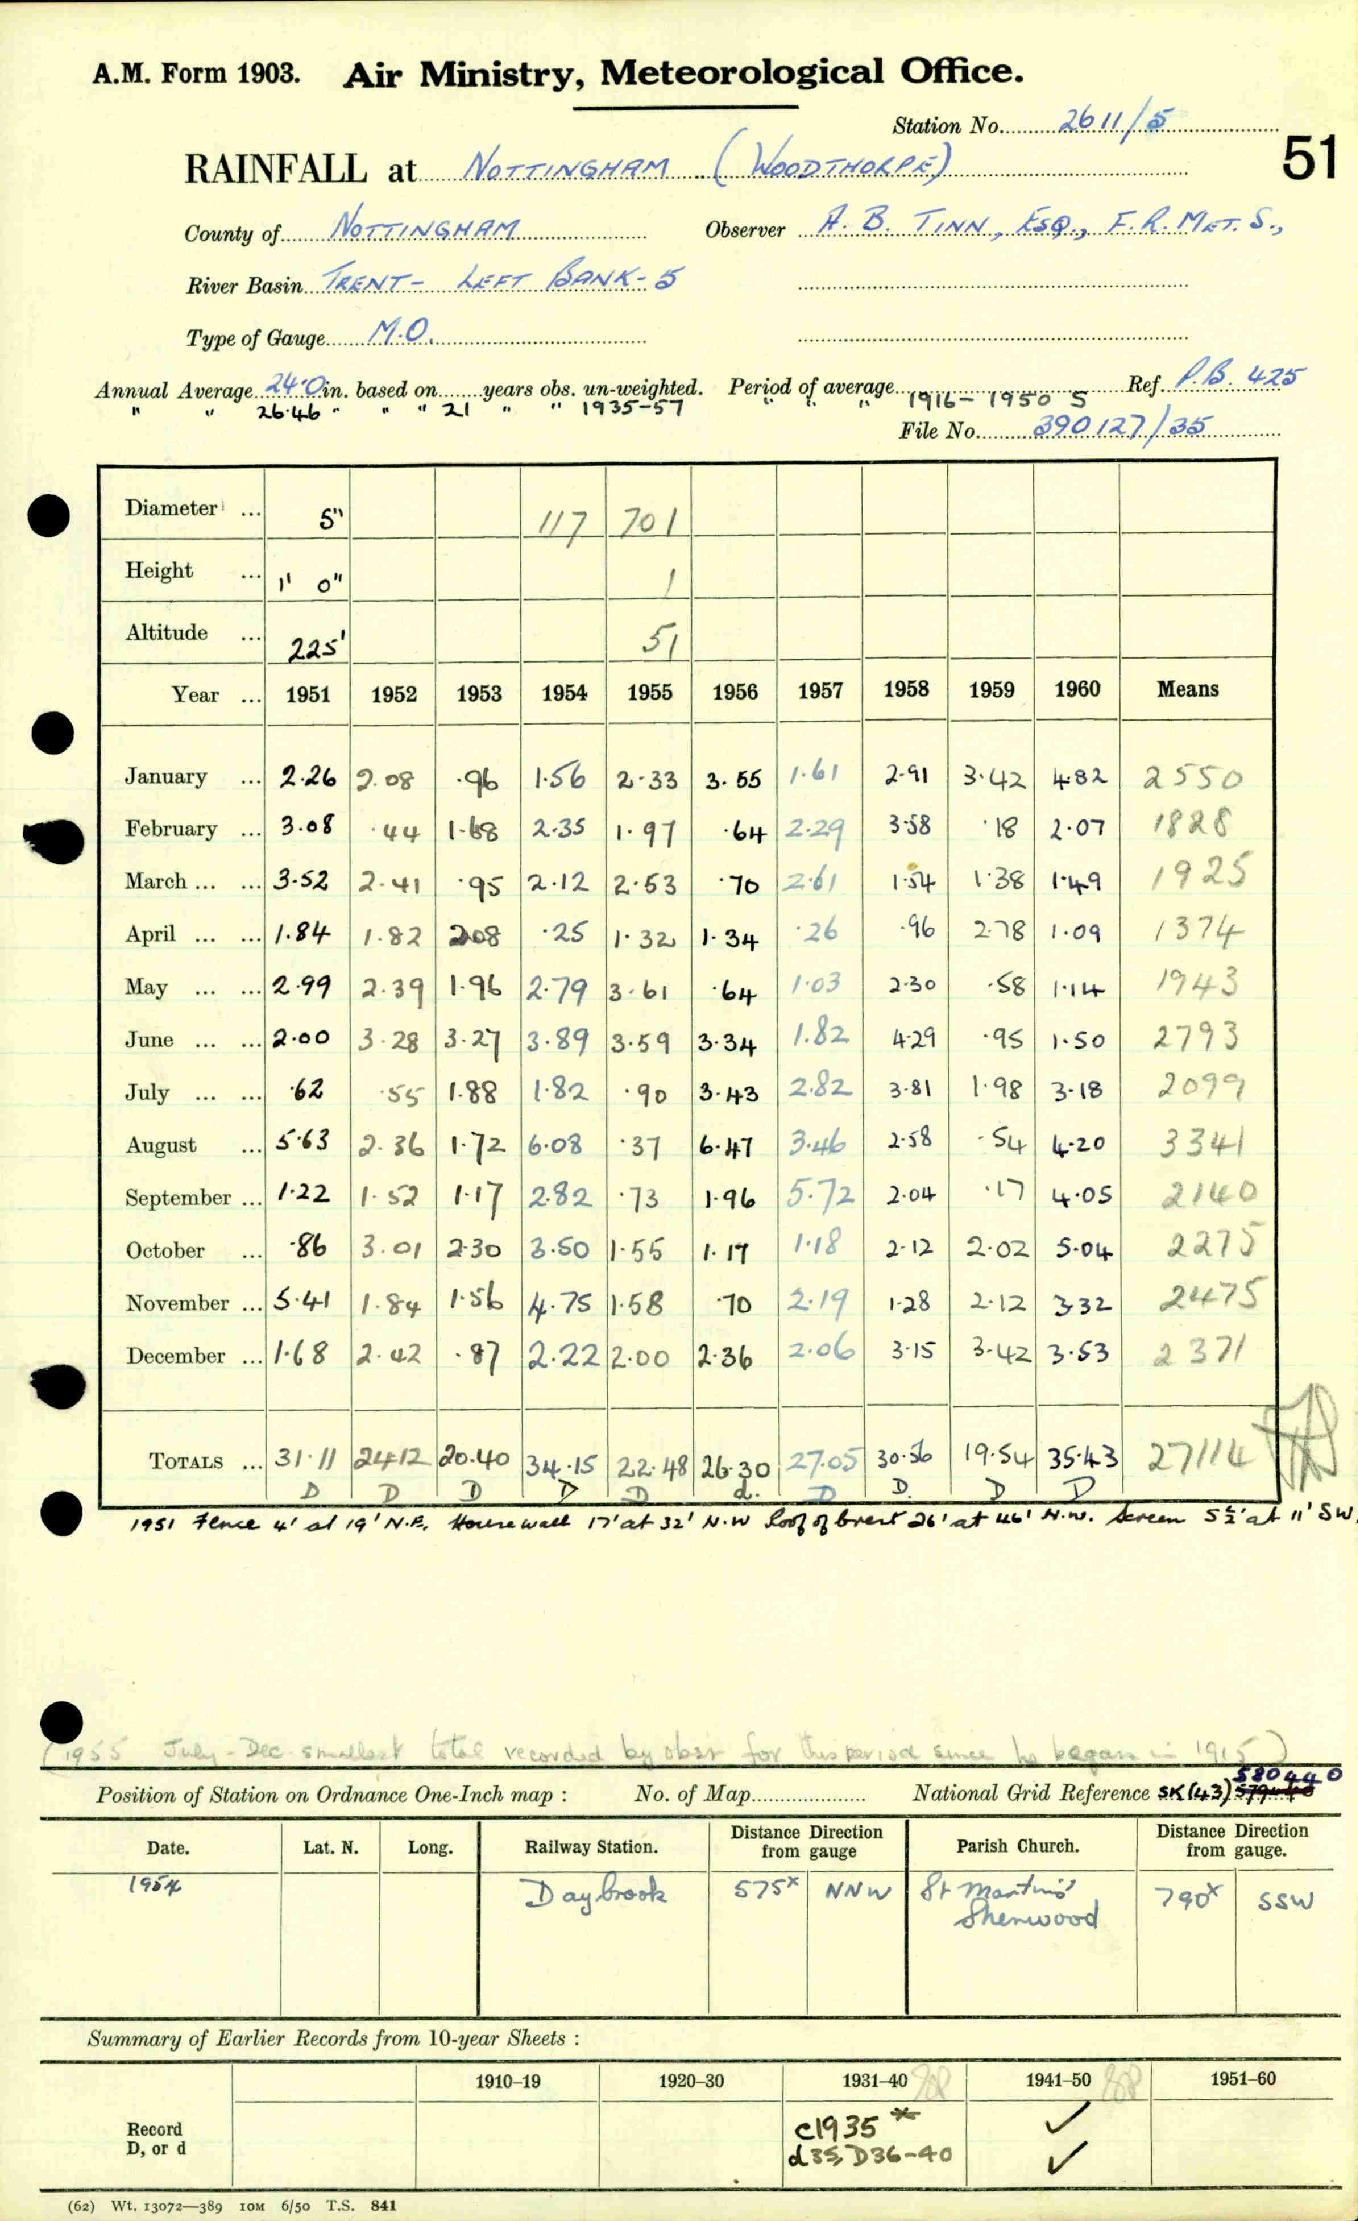 A.M. Form 1903. Air Ministry, Meteorological Office.
Station No. 2611/5
51
RAINFALL at NOTTINGHAM (WOODTHORPE)
County of NOTTINGHAM Observer A. B. TINN, ESQ., F.R.MET.S.,
River Basin TRENT - LEFT BANK - 5
Type of Gauge M.O.
Annual Average 24.0 in. based on years obs. un-weighted. Period of average 1916-1950 S Ref. P.B. 425
" " 26.46 " " " 21 " " 1935-57 " " "
File No. 390127/35
Diameter ... 5" 117 701
Height ... 1' 0" 1
Altitude ... 225' 51
Year ... 1951 1952 1953 1954 1955 1956 1957 1958 1959 1960 Means
January ... 2.26 2.08 .96 1.56 2.33 3.55 1.61 2.91 3.42 4.82 2550
February ... 3.08 .44 1.68 2.35 1.97 .64 2.29 3.58 .18 2.07 1828
March ... ... 3.52 2.41 .95 2.12 2.53 .70 2.61 1.54 1.38 1.49 1925
April ... ... 1.84 1.82 2.08 .25 1.32 1.34 .26 .96 2.78 1.09 1374
May ... ... 2.99 2.39 1.96 2.79 3.61 .64 1.03 2.30 .58 1.14 1943
June ... ... 2.00 3.28 3.27 3.89 3.59 3.34 1.82 4.29 .95 1.50 2793
July ... ... .62 .55 1.88 1.82 .90 3.43 2.82 3.81 1.98 3.18 2099
August ... 5.63 2.36 1.72 6.08 .37 6.47 3.46 2.58 .54 4.20 3341
September ... 1.22 1.52 1.17 2.82 .73 1.96 5.72 2.04 .17 4.05 2140
October ... .86 3.01 2.30 3.50 1.55 1.17 1.18 2.12 2.02 5.04 2275
November ... 5.41 1.84 1.56 4.75 1.58 .70 2.19 1.28 2.12 3.32 2475
December ... 1.68 2.42 .87 2.22 2.00 2.36 2.06 3.15 3.42 3.53 2371
TOTALS ... 31.11 24.12 20.40 34.15 22.48 26.30 27.05 30.56 19.54 35.43 27114
D D D D D d. D D. D D
1951 Fence 4' at 19' N.E. House wall 17' at 32' N.W Roof of 26' at 46' N.W. Screen 5½' at 11' SW.
(1955 July - Dec. smallest total recorded by obsr for this period since he began in 1915)
580440
Position of Station on Ordnance One-Inch map : No. of Map National Grid Reference SK(43)
Date. Lat. N. Long. Railway Station. Distance from gauge Direction Parish Church. Distance from gauge. Direction
1954 Daybrook 575x NNW St Martins' Sherwood 790x SSW
Summary of Earlier Records from 10-year Sheets :
1910–19 1920–30 1931–40 1941–50 1951–60
Record c1935* ✓
D, or d d35, D36-40 ✓
(62) Wt. 13072—389 10M 6/50 T.S. 841